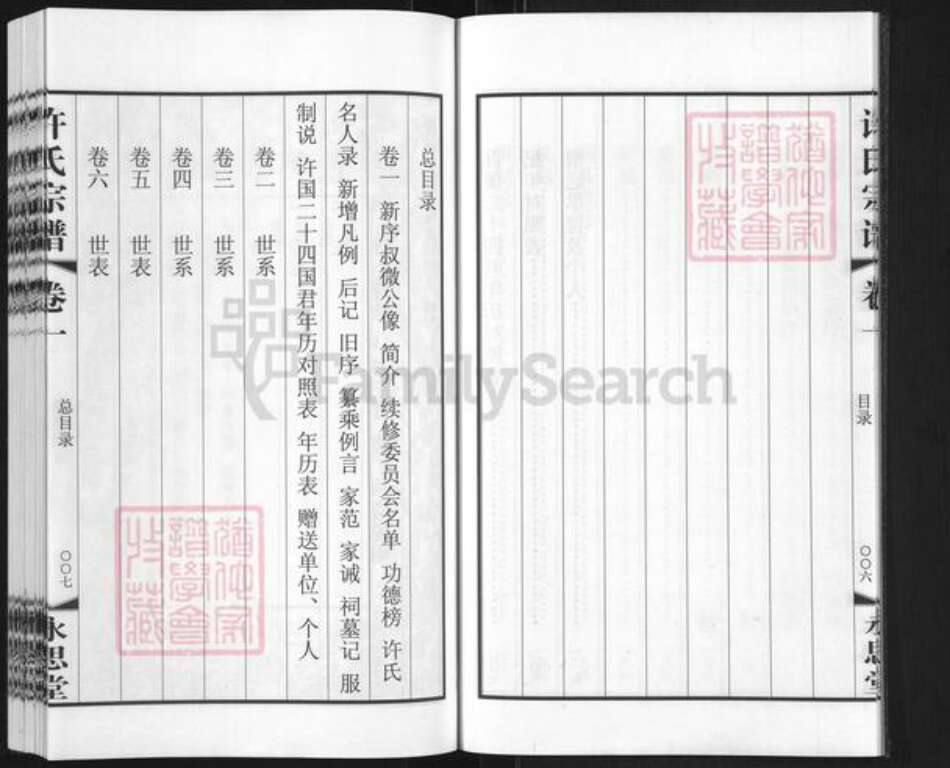 许氏宗谱 卷一
目录
〇〇六
永思堂
总目录
卷一 新序叔微公像 简介 续修委员会名单 功德榜 许氏
名人录 新增凡例 后记 旧序 纂乘例言 家范 家诫 祠墓记 服
制说 许国二十四国君年历对照表 年历表 赠送单位、个人
卷二 世系
卷三 世系
卷四 世系
卷五 世表
卷六 世表
许氏宗谱 卷一
总目录
〇〇七
永思堂
FamilySearch